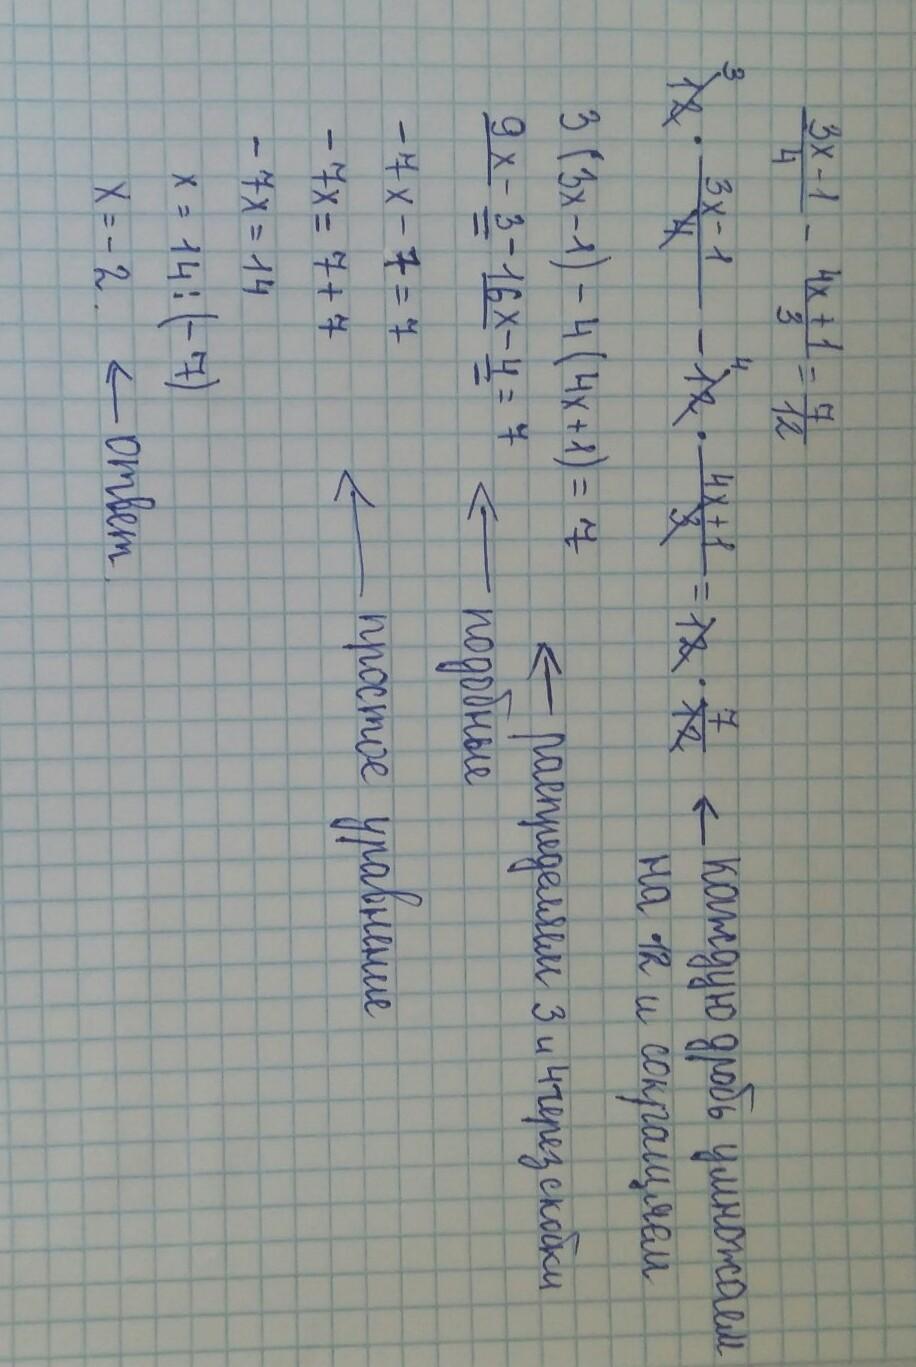 3x-1/4 - 4x+1/3 = 7/12
12³ · 3x-1/4 - 12⁴ · 4x+1/3 = 12 · 7/12 ← каждую дробь умножаем
на 12 и сокращаем
3(3x-1) - 4(4x+1) = 7 ← распределяем 3 и 4 через скобки
9x - 3 - 16x - 4 = 7 ← подобные
-7x - 7 = 7
-7x = 7 + 7 ← простое уравнение
-7x = 14
x = 14 : (-7)
x = -2. ← ответ.